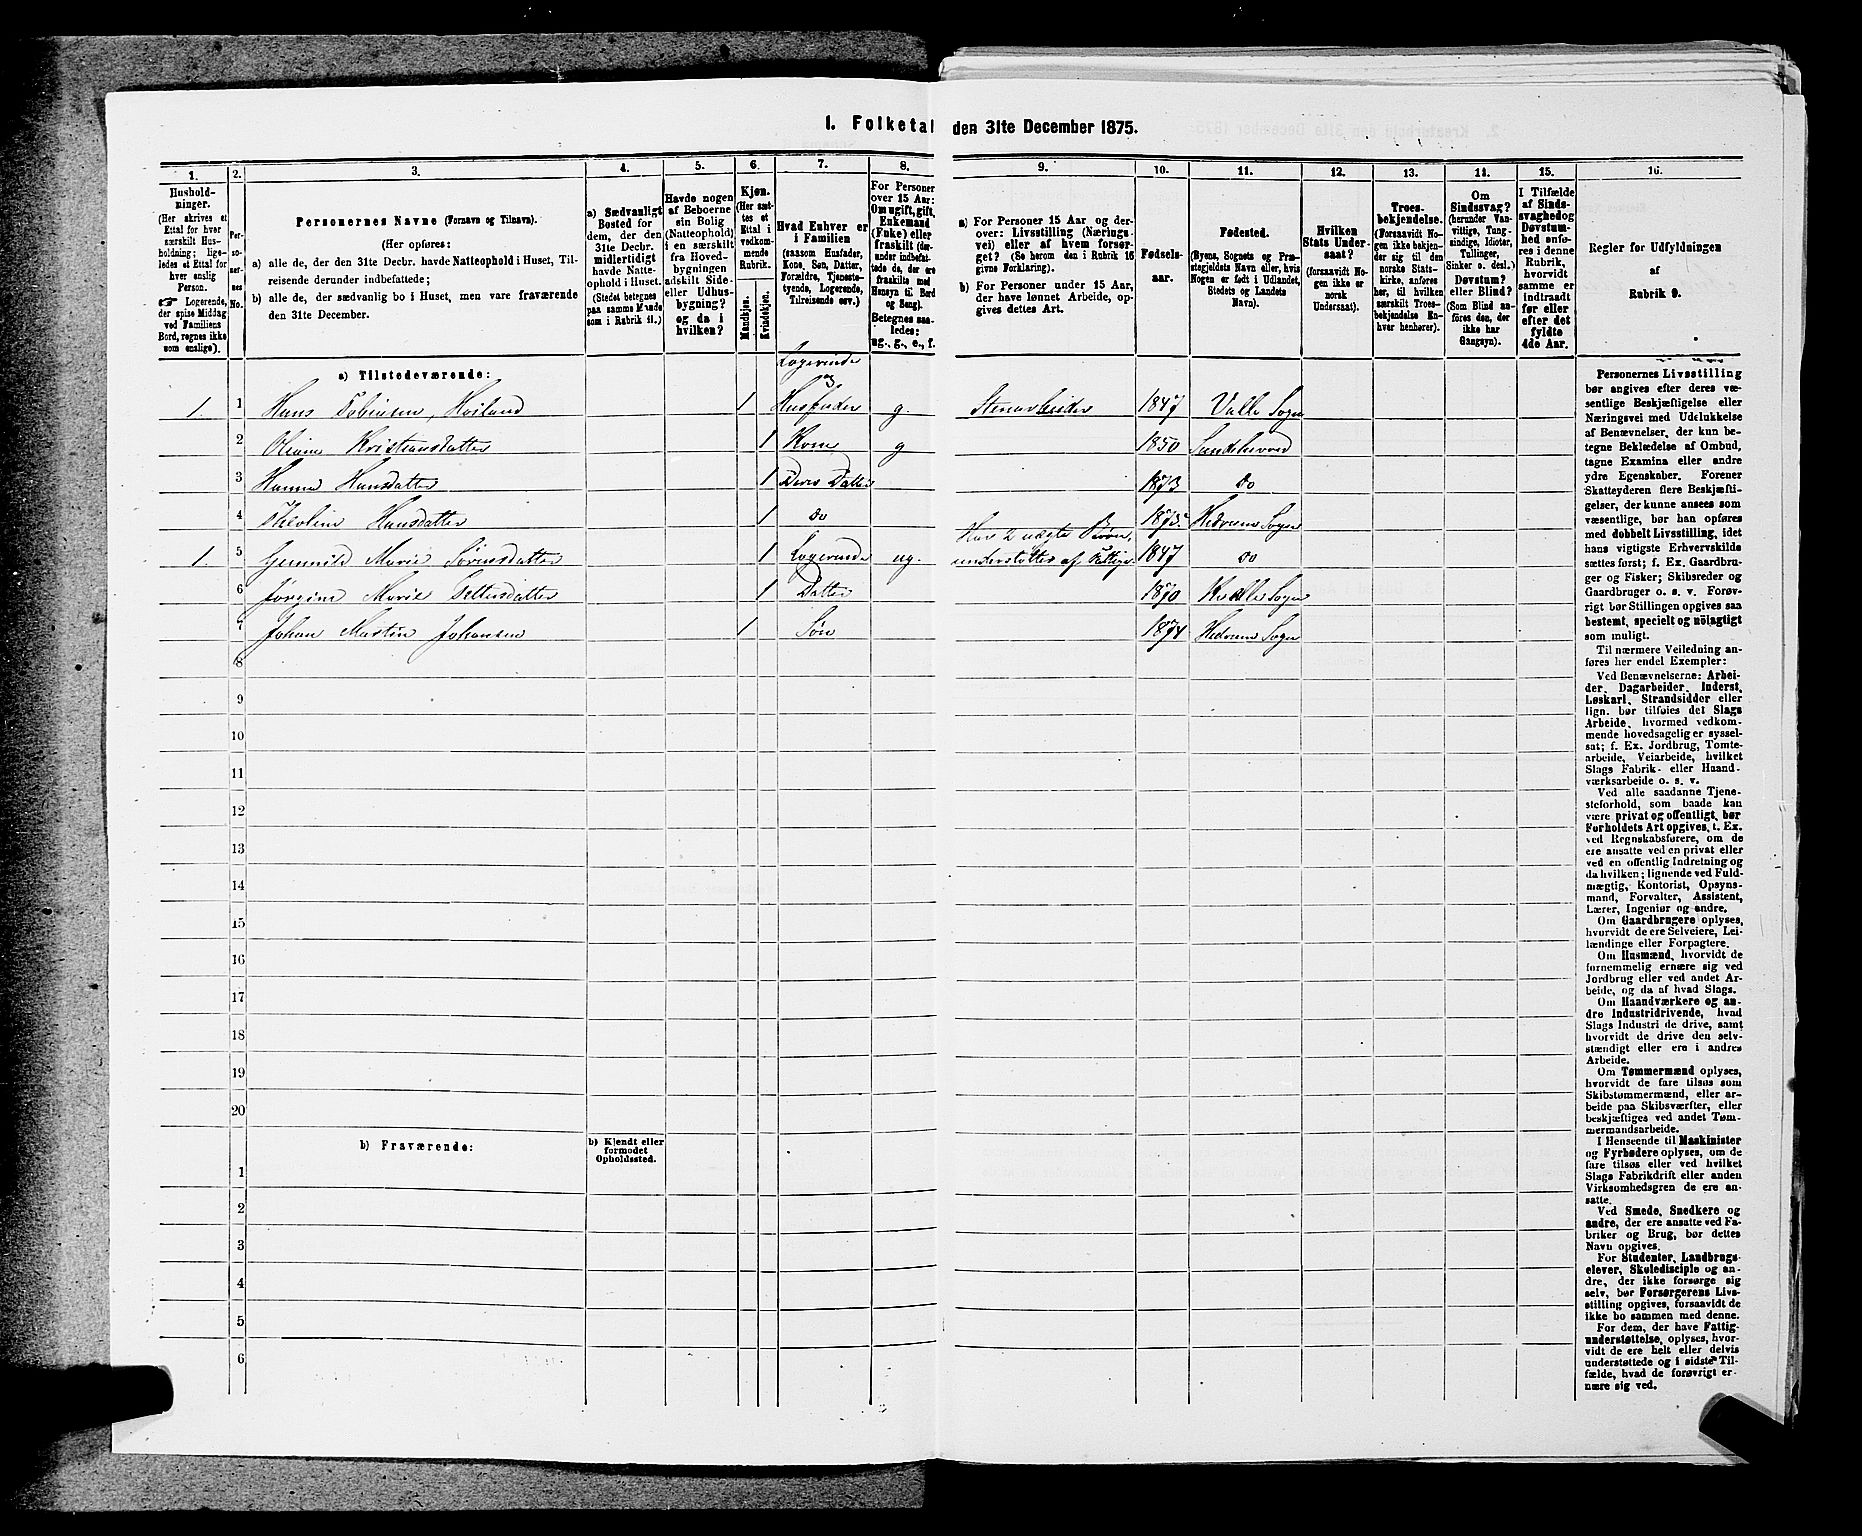 1. Folketal den 31te December 1875.
1.
Hushold-
ninger.
(Her skrives et
Ettal for hver
særskilt Hus-
holdning; lige-
ledes et Ettal for
hver enslig
Person.
☛ Logerende,
der spise Middag
ved Familiens
Bord, regnes ikke
som enslige).
2.
Per-
so-
ner-
nes
No.
3.
Personernes Navne (Fornavn og Tilnavn).
(Her opføres:
a) alle de, der den 31te Decbr. havde Natteophold i Huset, Til-
reisende derunder indbefattede;
b) alle de, der sædvanlig bo i Huset, men vare fraværende
den 31te December.
4.
a) Sædvanligt
Bosted for
dem, der den
31te Decbr.
midlertidigt
havde Natte-
ophold i Huset.
(Stedet betegnes
paa samme Maade
som i Rubrik 11.)
5.
Havde nogen
af Beboerne
sin Bolig
(Natteophold)
i en særskilt
fra Hoved-
bygningen
adskilt Side-
eller Udhus-
bygning?
og da i
hvilken?
6.
Kjøn.
(Her sæt-
tes et
Ettal i
vedkom-
mende
Rubrik.)
Mandkjøn.
Kvindekjøn.
7.
Hvad Enhver er
i Familien
(saasom Husfader,
Kone, Søn, Datter,
Forældre, Tjeneste-
tyende, Logerende,
Tilreisende osv.)
8.
For Personer
over 15 Aar:
Om ugift, gift,
Enkemand
(Enke) eller
fraskilt (der-
under indbefat-
tede de, der ere
fraskilte med
Hensyn til Bord
og Seng).
Betegnes saa-
ledes:
ug., g., e., f.
9.
a) For Personer 15 Aar og der-
over: Livsstilling (Nærings-
vei) eller af hvem forsør-
get? (Se herom den i Rubrik 16
givne Forklaring).
b) For Personer under 15 Aar,
der have lønnet Arbeide, op-
gives dettes Art.
10.
Fødsels-
aar.
11.
Fødested.
(Byens, Sognets og Præ-
stegjeldets Navn eller, hvis
Nogen er født i Udlandet,
Stedets og Landets
Navn).
12.
Hvilken
Stats Under-
saat?
(forsaavidt No-
gen ikke er
norsk
Undersaat).
13.
Troes-
bekjendelse.
(Forsaavidt No-
gen ikke bekjen-
der sig til den
norske Stats-
kirke, anføres
her, til hvilken
særskilt Troes-
bekjendelse En-
hver henhører).
14.
Om
Sindssvag?
(herunder Van-
vittige, Tung-
sindige, Idioter,
Tullinger,
Sinker o. desl.)
Døvstum?
eller Blind?
(Som Blind an-
føres den, der
ikke har
Gangsyn).
15.
I Tilfælde
af Sinds-
svaghed og
Døvstum-
hed anfø-
res i denne
Rubrik,
hvorvidt
samme er
indtraadt
før eller
efter det
fyldte
4de Aar.
16.
Regler for Udfyldningen
af
Rubrik 9.
a) Tilstedeværende:
Logerende
og
1. 1 Hans Tobiasen, Hoiland 1 Husfader g. Stenarbeider 1847 Valle Sogn
2 Oliane Kristiansdatter 1 Kone g 1850 Sandeherred
3 Hanna Hansdatter 1 Deres Datter 1873 Do
4 Theoline Hansdatter 1 do 1875 Hedrum Sogn
Har 2 uægte Børn,
1. 5 Gunnild Marie Sørensdatter 1 Logerende ug. understøttes af Fattigv. 1847 Do
6 Jørgine Marie Pettersdatter 1 Datter 1870 Sogn
7 Johan Martin Johansen 1 Søn 1874 Hedrum Sogn
8
9
10
11
12
13
14
15
16
17
18
19
20
b) Fraværende:
b) Kjendt eller
formodet
Opholdssted.
1
2
3
4
5
6
Personernes Livsstilling
bør angives efter deres væ-
sentlige Beskjæftigelse eller
Næringsvei med Udelukkelse
af Benævnelser, der kun be-
tegne Beklædelse af Ombud,
tagne Examina eller andre
ydre Egenskaber. Forener
Skatteyderen flere Beskjæfti-
gelser, der kunne ansees som
væsentlige, bør han opføres
med dobbelt Livsstilling, idet
hans vigtigste Erhvervskilde
sættes først; f. Ex. Gaardbru-
ger og Fisker; Skibsreder og
Gaardbruger o. s. v. Forøv-
rigt bør Stillingen opgives saa
bestemt, specielt og nöiagtigt
som muligt.
Til nærmere Veiledning an-
føres her endel Exempler:
Ved Benævnelserne: Arbei-
der, Dagarbeider, Inderst,
Løskarl, Strandsidder eller
lign. bør tilføies det Slags
Arbeide, hvormed vedkom-
mende hovedsagelig er syssel-
sat; f. Ex. Jordbrug, Tomte-
arbeide, Veiarbeide, hvilket
Slags Fabrik- eller Haand-
værksarbeide o. s. v.
Ved alle saadanne Tjene-
steforhold, som baade kan
være privat og offentligt, bør
Forholdets Art opgives, t. Ex.
ved Regnskabsførere, om de
ere ansatte ved en privat eller
ved en offentlig Indretning og
da hvilken; lignende ved Fuld-
mægtig, Kontorist, Opsyns-
mand, Forvalter, Assistent,
Lærer, Ingeniør og andre.
Om Gaardbrugere oplyses,
hvorvidt de ere Selveiere, Lei-
lændinge eller Forpagtere.
Om Husmænd, hvorvidt de
fornemmelig ernære sig ved
Jordbrug eller ved andet Ar-
beide, og da af hvad Slags.
Om Haandværkere og an-
dre Industridrivende, hvad
Slags Industri de drive, samt
hvorvidt de drive den selv-
stændigt eller ere i andres
Arbeide.
Om Tømmermænd oplyses,
hvorvidt de fare tilsøs som
Skibstømmermænd, eller ar-
beide paa Skibsværfter, eller
beskjæftiges ved andet Tøm-
mermandsarbeide.
I Henseende til Maskinister
og Fyrbødere oplyses, om de
fare tilsøs eller ved hvilket
Slags Fabrikdrift eller anden
Virksomhedsgren de ere an-
satte.
Ved Smede, Snedkere og
andre, der ere ansatte ved Fa-
briker og Brug, bør dettes
Navn opgives.
For Studenter, Landbrugs-
elever, Skoledisciple og an-
dre, der ikke forsørge sig
selv, bør Forsørgerens Livs-
stilling opgives, forsaavidt de
ikke bo sammen med denne.
For dem, der have Fattig-
understøttelse, oplyses, hvor-
vidt de ere helt eller delvis
understøttede og i sidste Til-
fælde, hvad de forøvrigt er-
nære sig ved.